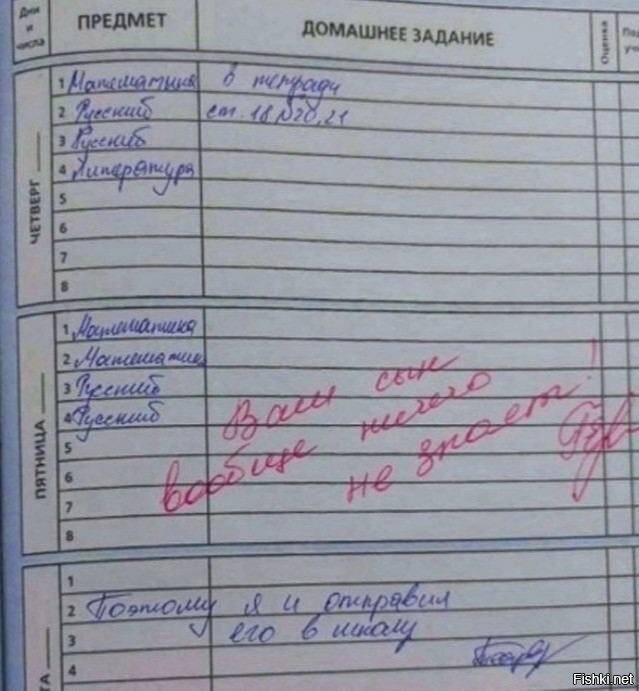 Дни и числа ПРЕДМЕТ ДОМАШНЕЕ ЗАДАНИЕ Оценка
ЧЕТВЕРГ
1 Математика в тетради
2 Русский ст. 18 №20,21
3 Русский
4 Литература
5
6
7
8
ПЯТНИЦА
1 Математика
2 Математик
3 Русский
4 Русский
5
6
7
8
Ваш сын
вообще ничего
не знает!
1
2 Поэтому я и отправил
3 его в школу
4
Fishki.net